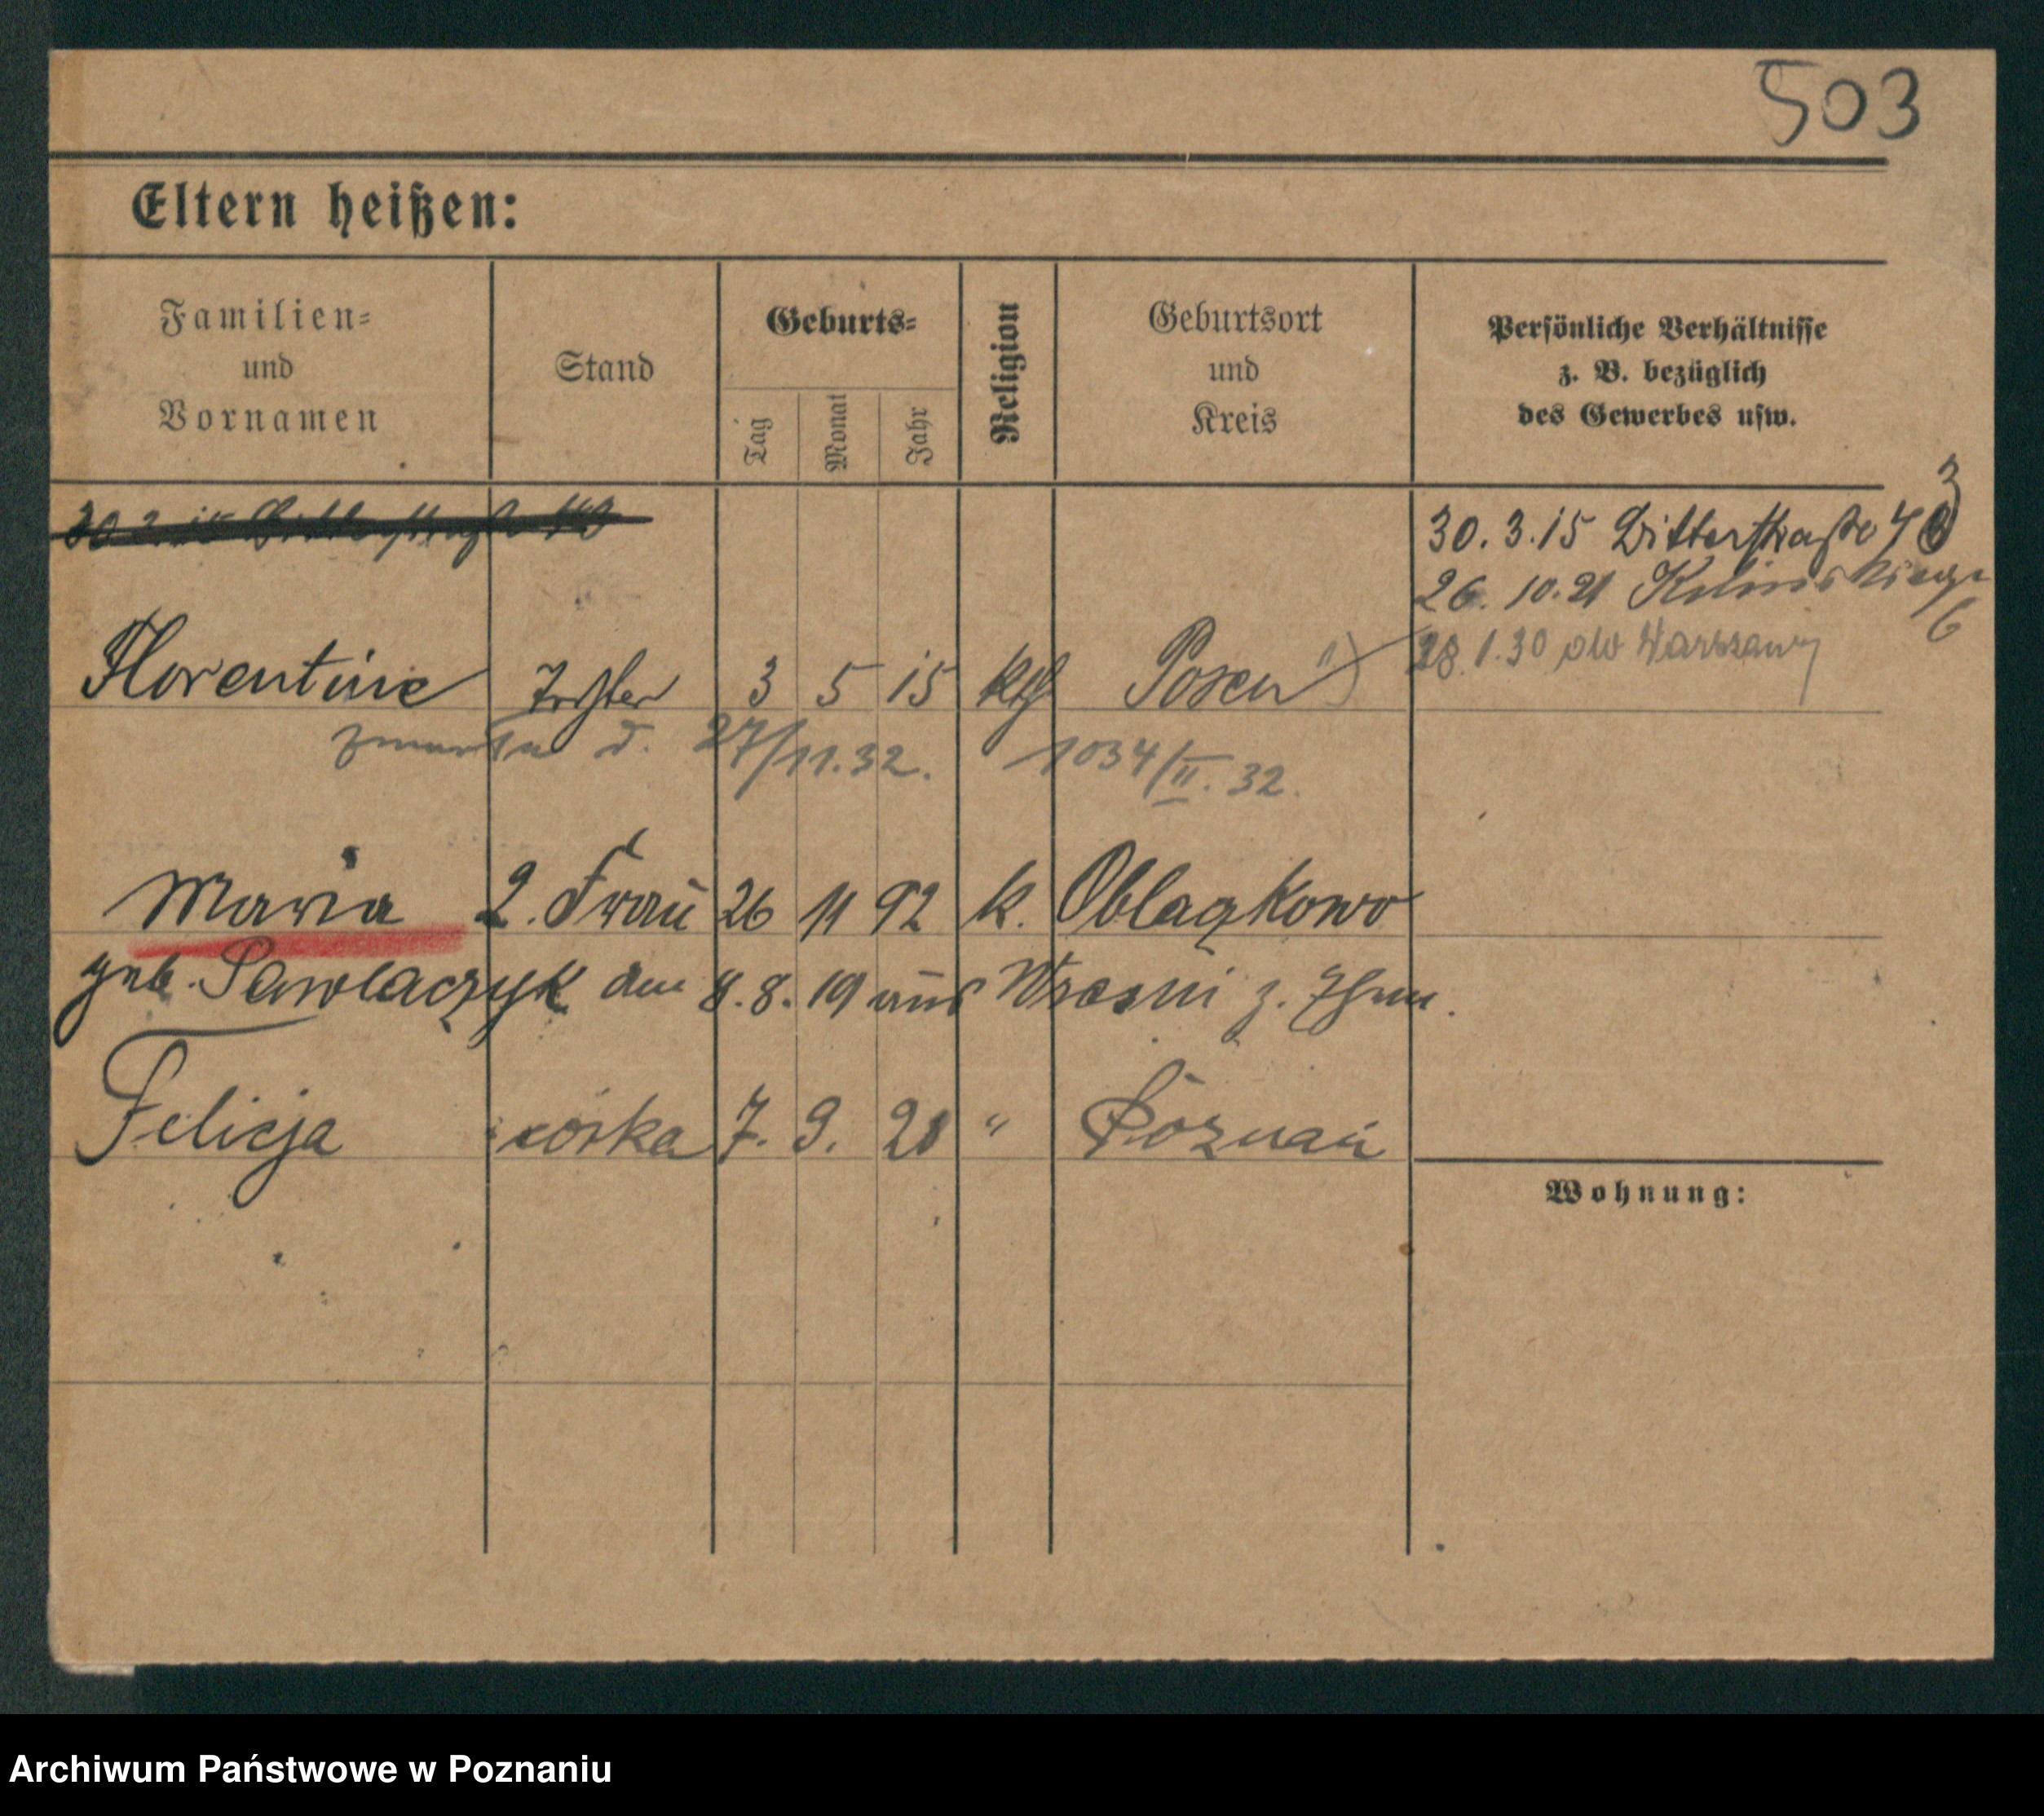 503
Eltern heißen:
Familien=
und
Vornamen
Stand
Geburts=
Tag
Monat
Jahr
Religion
Geburtsort
und
Kreis
Persönliche Verhältnisse
z. B. bezüglich
des Gewerbes usw.
30.3.15 Bitterstraße
26.10.21
28.1.30 do Warszawy
Florentine Tochter 3 5 15 kth Posen 1)
zmarła d. 27/11.32. 1034/II.32.
Maria 2. Frau 26 11 92 k. Oblaqkowo
geb. Pawlaczyk den 8.8.19 aus Wresni z. Ehem.
Felicja córka 7. 9. 20 " Poznań
Wohnung:
Archiwum Państwowe w Poznaniu